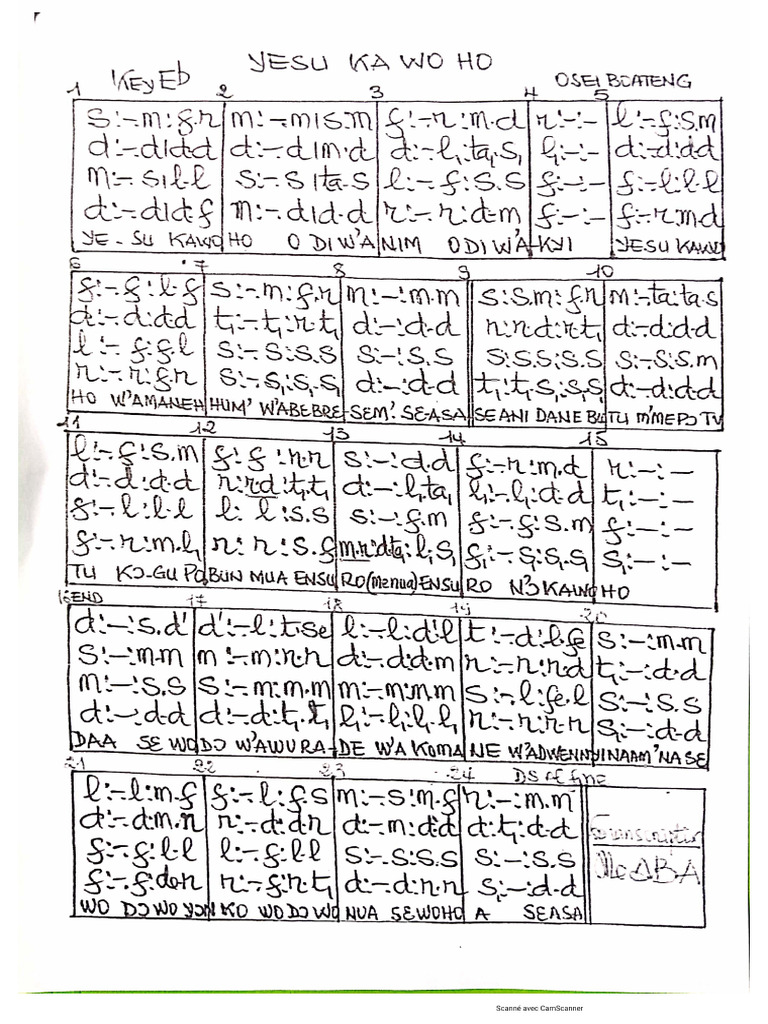 YESU KA WO HO
Key Eb
OSEI BOATENG
1 2 3 4 5
s:-m:f.r | m:-.m|s.m | f:-r:m.d | r:-:- | l:-f:s.m
d:-d|d.d | d:-.d|m.d | d:-l₁:ta₁.s₁ | l₁:-:- | d:-d:d.d
m:-.s|l.l | s:-.s|ta.s | l:-.f:s.s | f:-:- | f:-l:l.l
d:-d|d.f | m:-.d|d.d | r:-r:d.m | f:-:- | f:-r:m.d
YE-SU KAWO HO O DI W'ANIM ODI W'A-KYI YESU KAWO
6 7 8 9 10
f:-f:l.f | s:-.m:f.r | m:-:m.m | s:s.m:f.r | m:-.ta:ta.s
d:-d:d.d | t₁:-t₁:r.t₁ | d:-:d.d | r:r.d:r.t₁ | d:-d:d.d
l:-f.f.l | s:-.s:s.s | s:-:s.s | s:s.s:s.s | s:-.s:s.m
r:-r:f.r | s:-.s₁:s₁.s₁ | d:-:d.d | t₁:t₁.s₁:s₁.s₁ | d:-d:d.d
HO W'AMANEH HUM' W'ABEBRE-SEM'. SEASA SEANI DANE BU TU M'MEPƆ TV
11 12 13 14 15
l:-f:s.m | f:f:r.r | s:-:d.d | f:-r:m.d | r:-:-
d:-d:d.d | r:rd:t₁.t₁ | d:-:l₁.ta₁ | l₁:-l₁:d.d | t₁:-:-
f:-l:l.l | l:l:s.s | s:-:f.m | f:-f:s.m | f:-:-
f:-r:m.l₁ | r:r:s.f | m.r:d.ta₁:l₁.s₁ | f₁:-s₁:s₁.s₁ | s₁:-:-
TU KƆ-GU PO BUN MUA ENSU RO (menua) ENSU RO N'Ɔ KAWO HO
16 END 17 18 19 20
d:-:s.d' | d':-l:t.se | l:-l:d'.l | t:-d:l.fe | s:-:m.m
s:-:m.m | m:-m:r.r | d:-d:d.m | r:-r:r.d | t₁:-:d.d
m:-:s.s | s:-m:m.m | m:-m:m.m | s:-l:fe.l | s:-:s.s
d:-:d.d | d:-d:t₁.t₁ | l₁:-l₁:l₁.l₁ | r:-r:r.r | s₁:-:d.d
DAA SE WO DƆ W'AWURA-DE W'A KOMA NE W'ADWENNYINAAM'NA SE
21 22 23 24 DS al fine
l:-l:m.f | f:-l:f.s | m:-s:m.f | r:-:m.m
d:-d:m.r | r:-d:d.r | d:-m:d.d | d:t₁:d.d
f:-f:l.l | l:-f:l.l | s:-s:s.s | s:-:s.s
f:-f:de.r | r:-f:r.t₁ | d:-d:r.r | s₁:-:d.d
WO DƆ WO YƆN KO WO DƆ WO NUA SEWOHO A SEASA
Scanné avec CamScanner